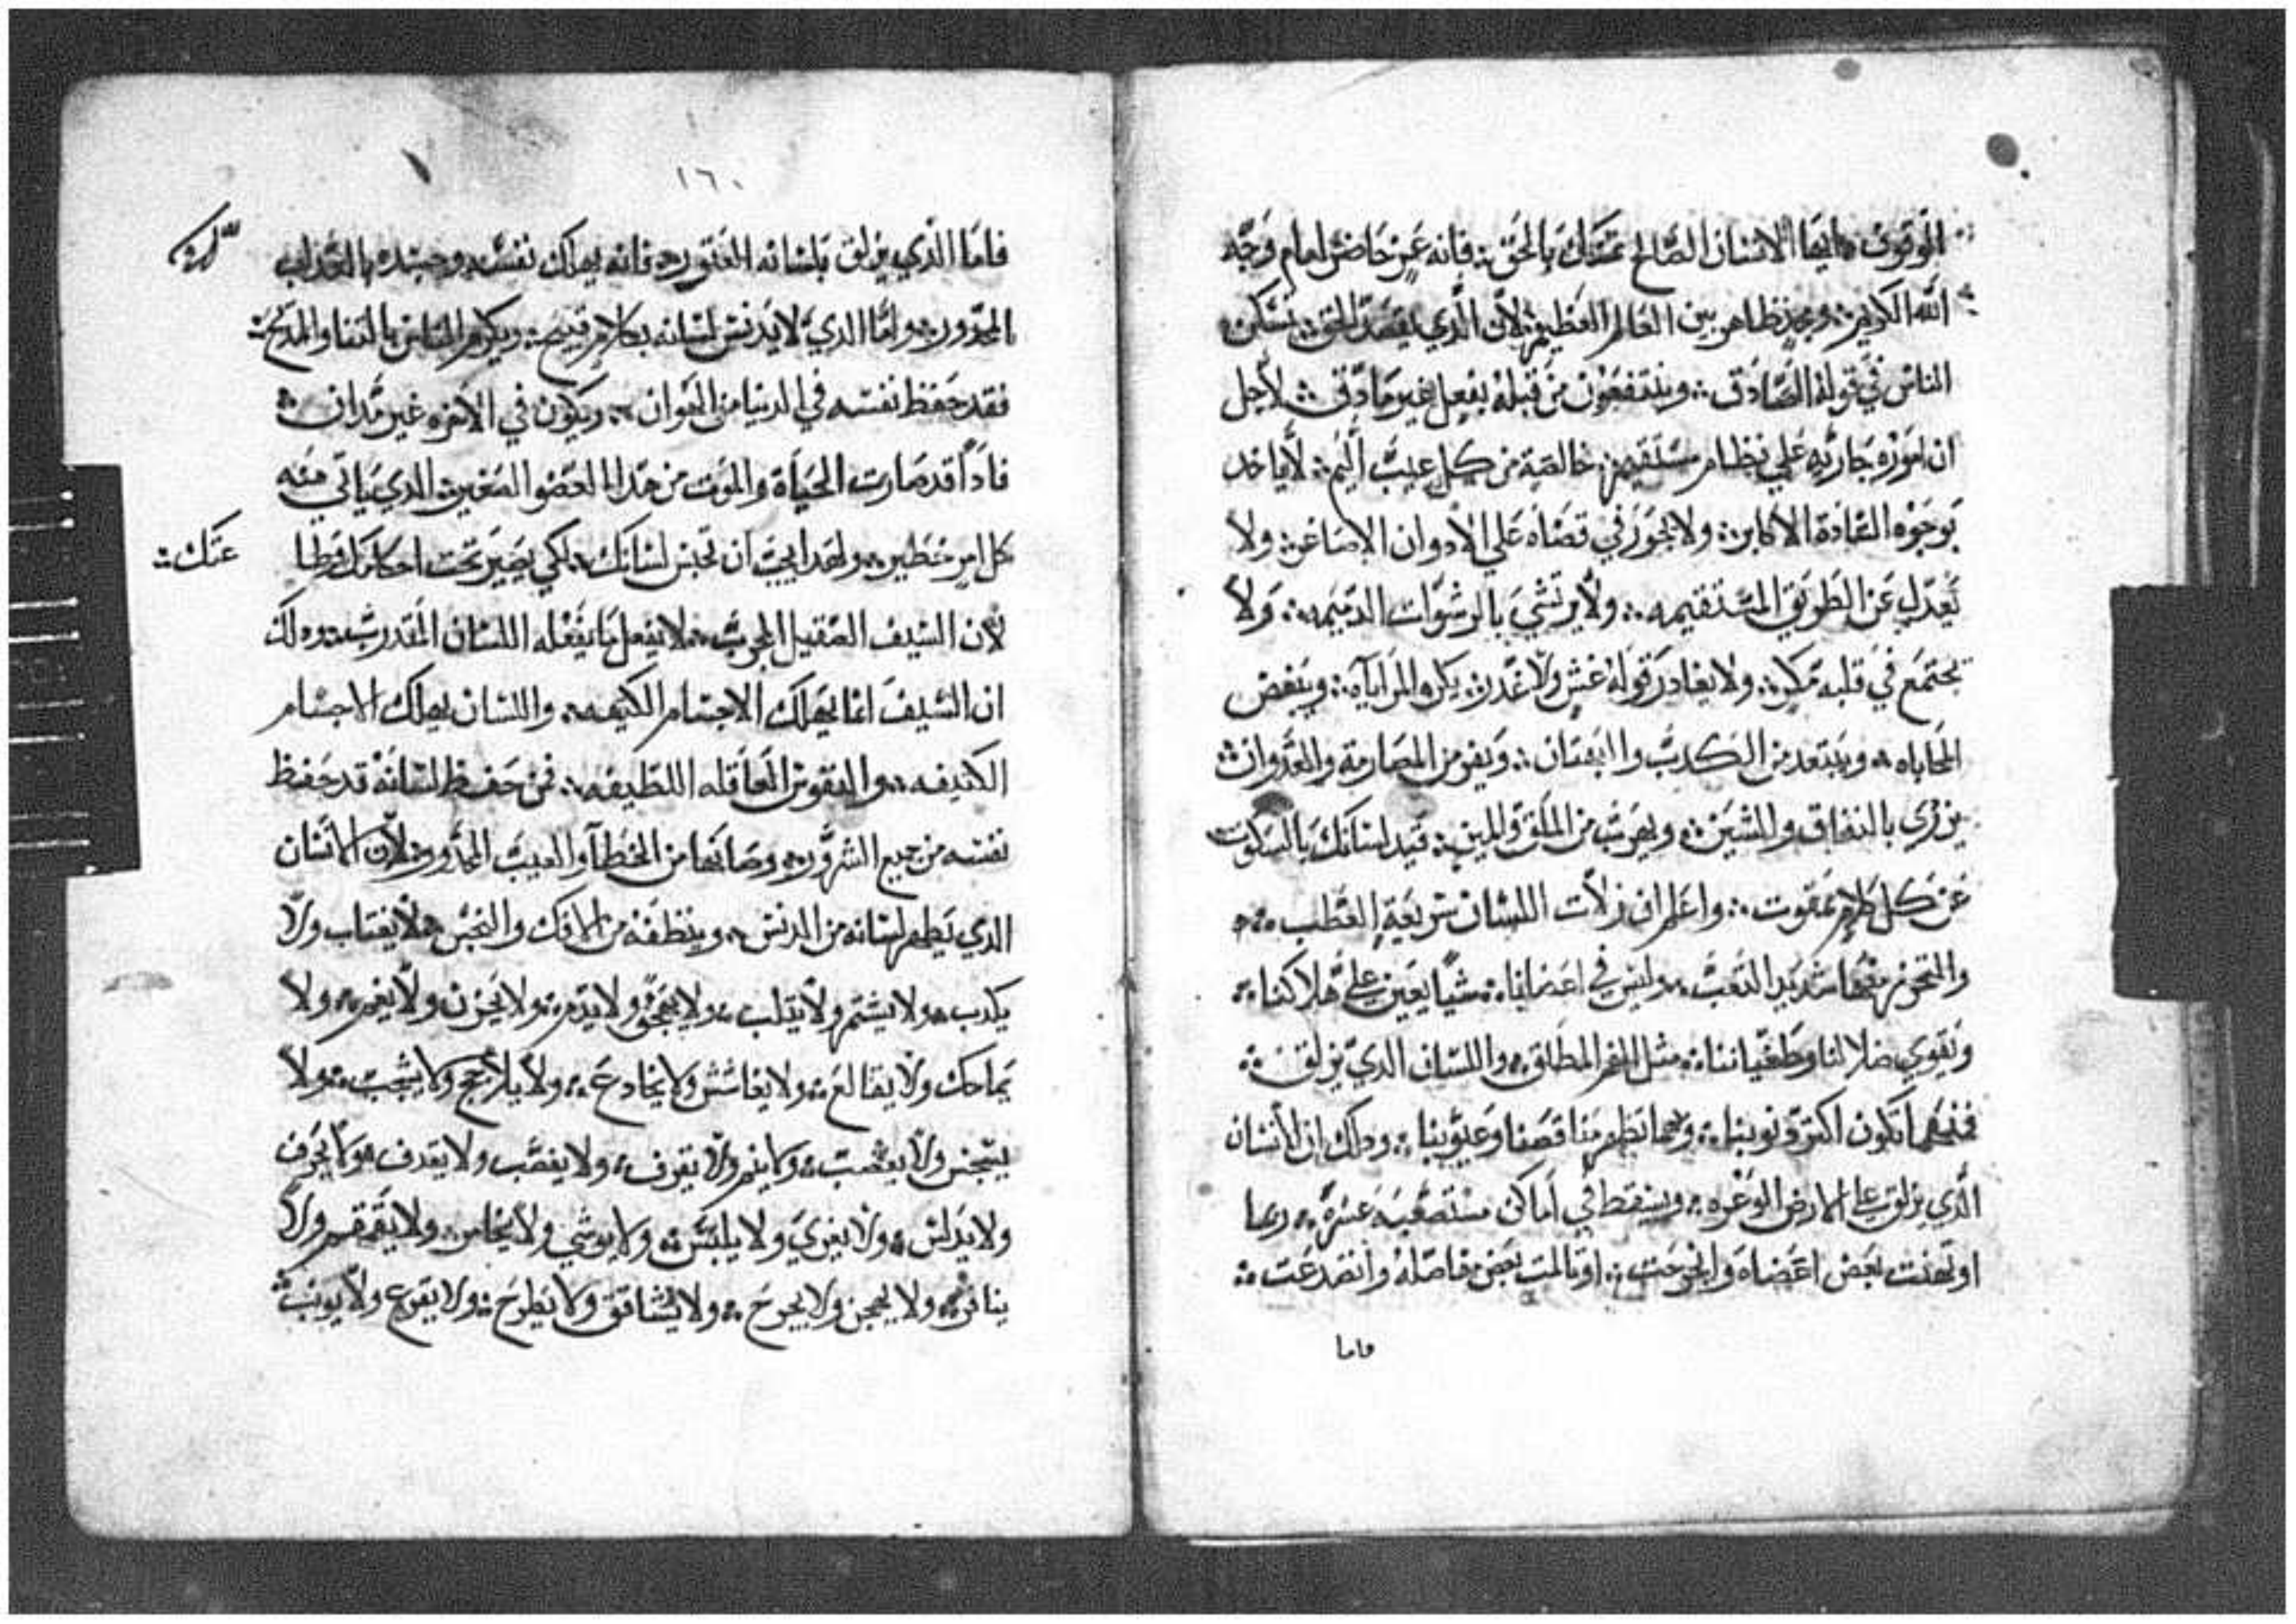 الوقوف ❖ ايها الانسان الصالح تمسك بالحق ❖ فانه عن حاضر امام وجه
الله الكريم ❖ ومجد ظاهر بين العالم العظيم ❖ لان الدي يقصد الحق ❖ تسكن
الناس في قوله الصادق ❖ وينتفعون من قبله بفعل غير مادق ❖ لاجل
ان اموره جاريه علي نظام مستقيم ❖ خالصة من كل عيب اليم ❖ لا ياخد
بوجوه القادة الاكابر ❖ ولا يجوز في قضاه علي الادوان الاصاغر ❖ ولا
يعدل عن الطريق المستقيمه ❖ ولا يرتشي بالرشوات الدميمه ❖ ولا
يجتمع في قلبه مكر ❖ ولا يغادر قوله غش ولا غدر ❖ يكره المراياه ❖ ويبغض
المحاباه ❖ ويبتعد من الكدب والبهتان ❖ ويفر من المصارمة والعدوان ❖
يزري بالنفاق والشين ❖ ويهرب من الملق والمين ❖ قيد لسانك بالسكوت
عن كل كلام ممقوت ❖ واعلم ان زلات اللسان سريعة العطب ❖
والتحرز منها شديد التعب ❖ وليس في اعضايناه ❖ شيا يعين علي هلاكنا ❖
ويقوي ضلالنا وطغياننا ❖ مثل الفم المطلق ❖ واللسان الدي يزلق ❖
فمنهما تكون اكثر دنوبنا ❖ وبهما تظهر مناقصنا وعيوبنا ❖ ودلك ان الانسان
الدي يزلق علي الارض الوعره ❖ ويسقط في اماكن مستصعبه عسره ❖ ربما
اوتهنت بعض اعضاه وانجرحت ❖ او تالمت بعض مفاصله وانصدعت ❖
فاما
١٦٠
فاما الدي يزلق بلسانه العتور ❖ فانه يهلك نفسه وجسده بالعداب
المحدور ❖ واما الدي لا يدنس لسانه بكلام قبيح ❖ ويكرم الناس بالثنا والمديح ❖
فقد حفظ نفسه في الدنيا من الهوان ❖ ويكون في الاخره غير مدان ❖
فادا قد صارت الحياة والموت من هدا العضو الصغير ❖ الدي ياتي منه
كل امر خطير ❖ ولهدا يجب ان تحبس لسانك ❖ لكي يصير تحت احكامك
عنك ❖
لان السيف الصقيل المجرب ❖ لا يفعل ما يفعله اللسان المتدرب ❖ ودلك
ان السيف انما يهلك الاجسام الكتيفه ❖ واللسان يهلك الاجسام
الكتيفه ❖ والنفوس العاقله اللطيفه ❖ فمن حفظ لسانه قد حفظ
نفسه من جميع الشرور ❖ وصانها من الخطا والعيب المحدور ❖ لان الانسان
الدي يطهر لسانه من الدنس ❖ وينظفه من الافك والنجس ❖ لا يغتاب ولا
يكدب ❖ ولا يشتم ولا يثلب ❖ ولا يهجو ولا يدم ❖ ولا يحزن ولا يغم ❖ ولا
يماحك ولا يقالع ❖ ولا يغاشش ولا يخادع ❖ ولا يلاجج ولا يشجب ❖ ولا
يتجسس ولا يعتب ❖ ولا ينم ولا يقرف ❖ ولا يغضب ولا يقدف ❖ ولا يحرف
ولا يدلس ❖ ولا يغري ولا يلبس ❖ ولا يوشي ولا يخامر ❖ ولا يقمقم ولا
ينافر ❖ ولا يهجن ولا يجرح ❖ ولا يشاقق ولا يطرح ❖ ولا يقرع ولا يونب ❖